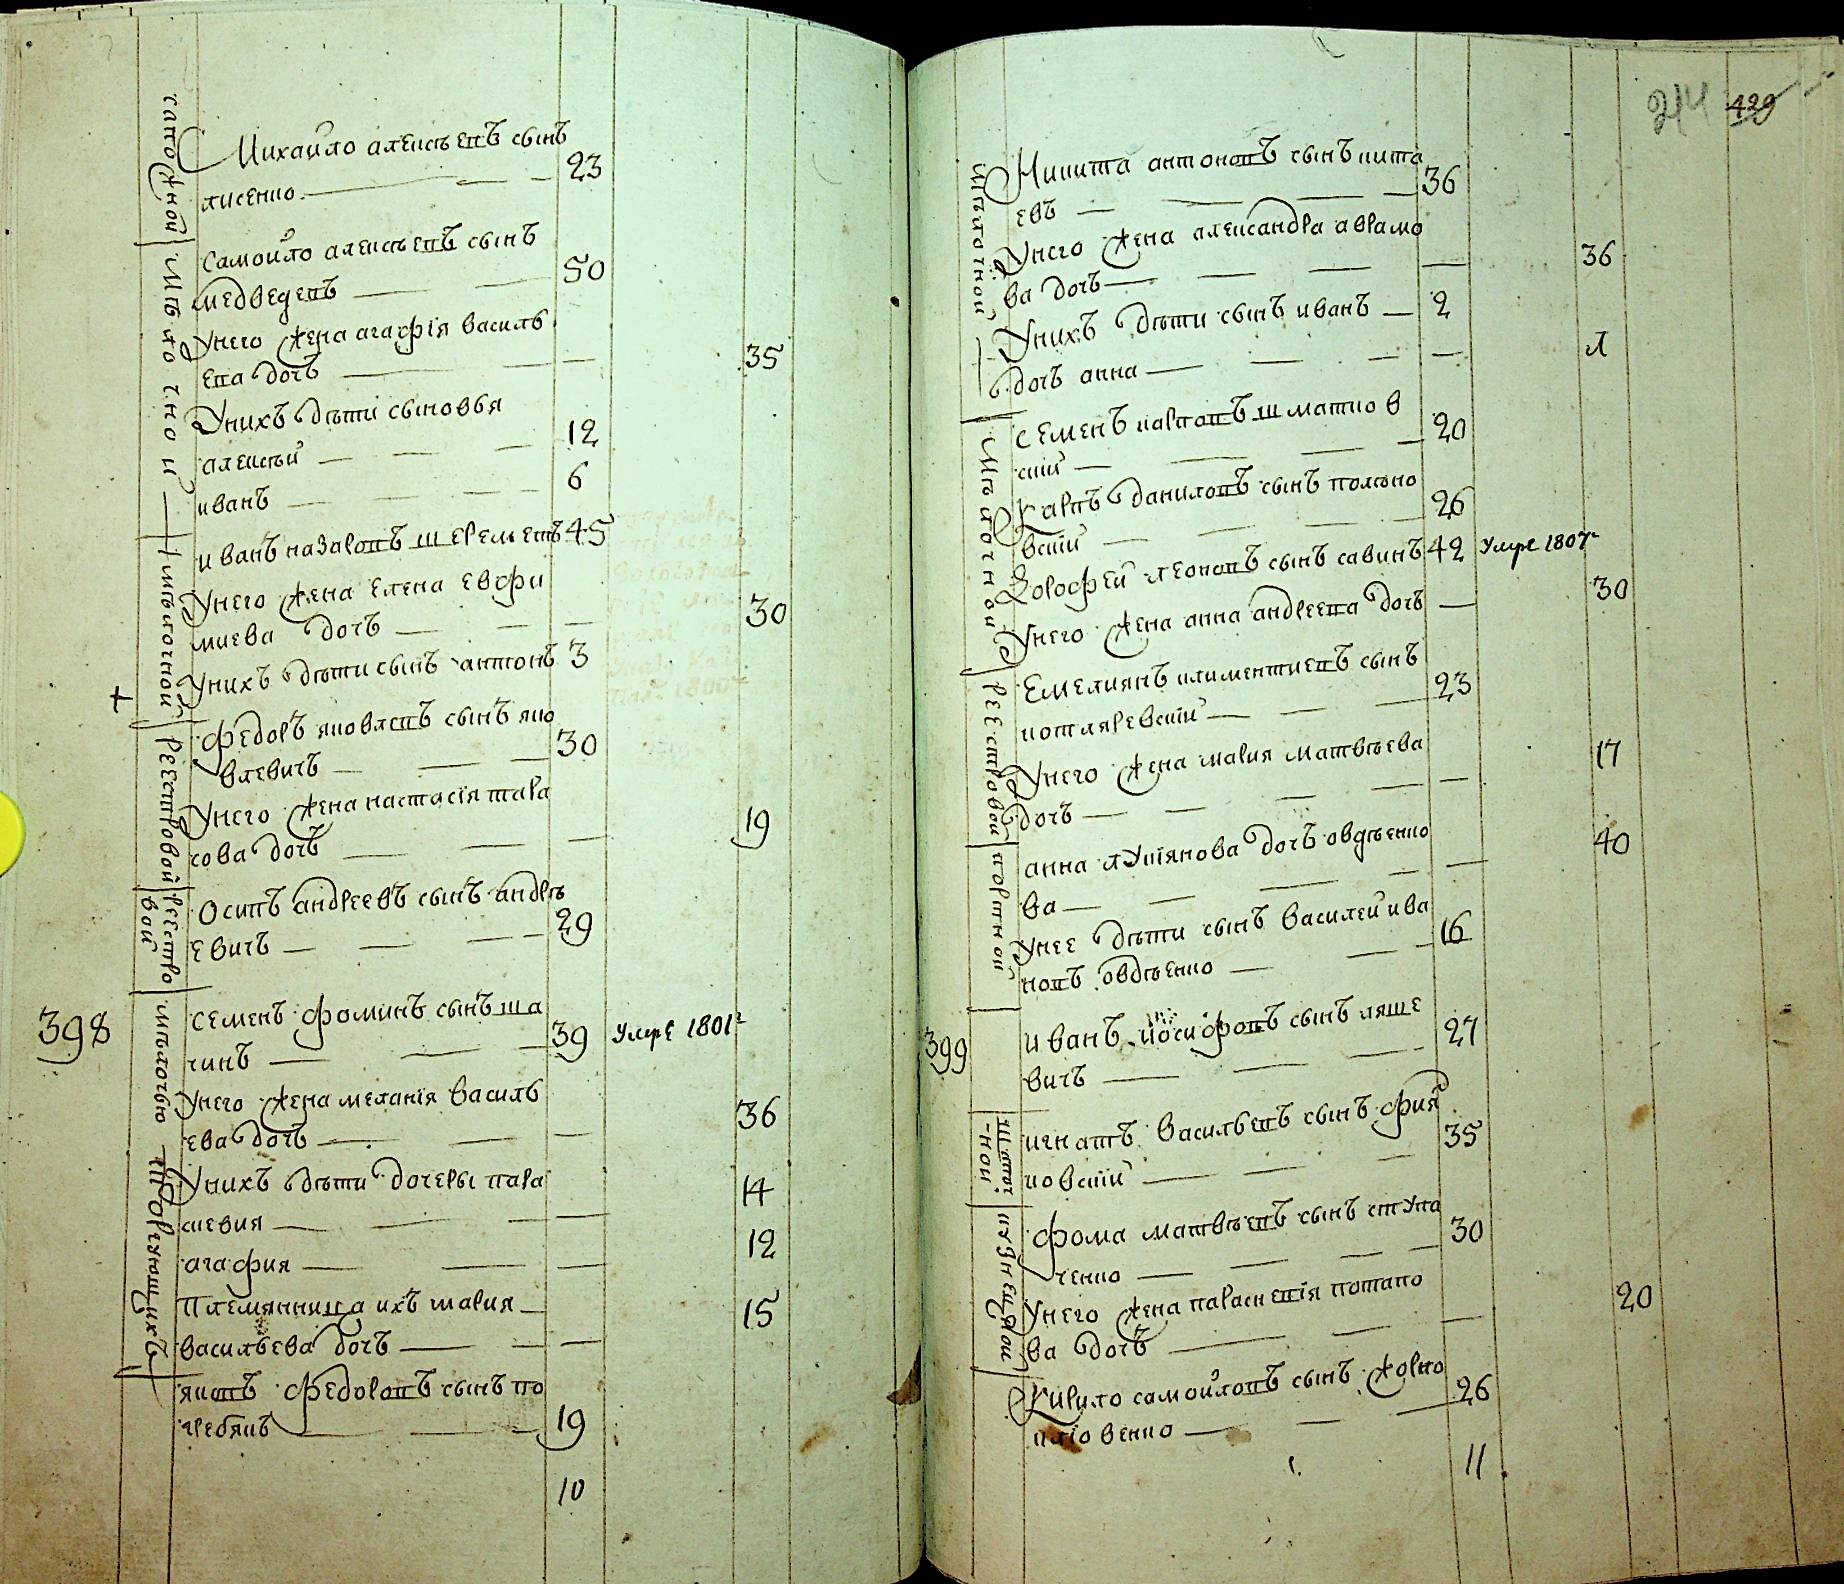 сапожной
Михайло алексеевъ сынъ
лисенко 23
Мѣлочной
Самойло алексѣевъ сынъ
медведевъ 50
Унего жена агафія василь
ева дочъ 35
Унихъ дѣти сыновья
алексѣй 12
иванъ 6
мѣлочной
иванъ назаровъ шереметъ 45
Унего жена елена евфи
миева дочъ 30
Унихъ дѣти сынъ антонъ 3
+
реестровой
Федоръ яковлевъ сынъ яко
влевичъ 30
Унего жена настасія тара
сова дочъ 19
реестро
вой
Осипъ андреевъ сынъ андрѣ
евичъ 29
398
мѣлочью торгующихъ
Семенъ фоминъ сынъ ша
чинъ 39 Умре 1801г
Унего жена меланія василь
ева дочъ 36
Унихъ дѣти дочеры пара
скевия 14
агафия 12
Племянница ихъ мария
васильева дочъ 15
якимъ федоровъ сынъ по
гребякъ 19
10
244 429
Мѣлочной
Никита антоновъ сынъ кита
евъ 36
Унего жена александра аврамо
ва дочъ 36
Унихъ дѣти сынъ иванъ 2
дочъ анна 1
Мѣлочной
Семенъ карповъ шматков
ский 20
Карпъ даниловъ сынъ полоно
вский 26
Дорофей леоновъ сынъ савинъ 42 Умре 1807г
Унего жена анна андреева дочъ 30
Реестровой
Емелиянъ климентиевъ сынъ
котляревский 23
Унего жена мария матвѣева
дочъ 17
портной
анна лукіянова дочъ овдѣенко
ва 40
Унее дѣти сынъ василей ива
новъ овдѣенко 16
399
иванъ йосифовъ сынъ ляше
вичъ 27
игнатъ васильевъ сынъ фия
ковский 35
Фома матвѣевъ сынъ ступа
ченко 30
Унего жена параскевія потапо
ва дочъ 20
Кирило самойловъ сынъ жорно
кліовенко 26
11